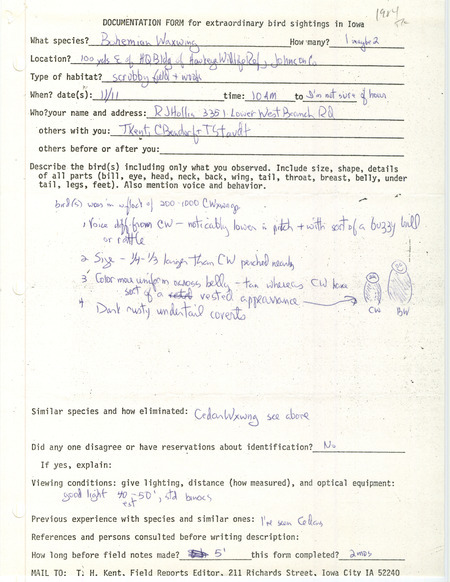 1984
DOCUMENTATION FORM for extraordinary bird sightings in Iowa
What species? Bohemian Waxwing How many? 1 maybe 2
Location? 100 yds E of HQ Bldg of Hawkeye Wildlife Ref, Johnson Co
Type of habitat? scrubby field + woods
When? date(s): 11/11 time: 10 AM to I'm not sure of hours
Who?your name and address: RJ Hollis 3351 Lower West Branch Rd
others with you: T Kent, C Bendorf + T Staudt
others before or after you:
Describe the bird(s) including only what you observed. Include size, shape, details
of all parts (bill, eye, head, neck, back, wing, tail, throat, breast, belly, under
tail, legs, feet). Also mention voice and behavior.
bird(s) was in a flock of 200-1000 CWaxwings
1 Voice diff from CW - noticably lower in pitch + with sort of a buzzy
or rattle
2 Size - 1/4-1/3 larger than CW perched nearby
3 Color more uniform across belly - tan whereas CW have
sort of a vested appearance
CW BW
4 Dark rusty undertail coverts
Similar species and how eliminated: Cedar Waxwing see above
Did any one disagree or have reservations about identification? No
If yes, explain:
Viewing conditions: give lighting, distance (how measured), and optical equipment:
good light 40-50', std binocs
est
Previous experience with species and similar ones: I've seen Cedars
References and persons consulted before writing description:
How long before field notes made? 5' this form completed? 2 mos
MAIL TO: T. H. Kent, Field Reports Editor, 211 Richards Street, Iowa City IA 52240